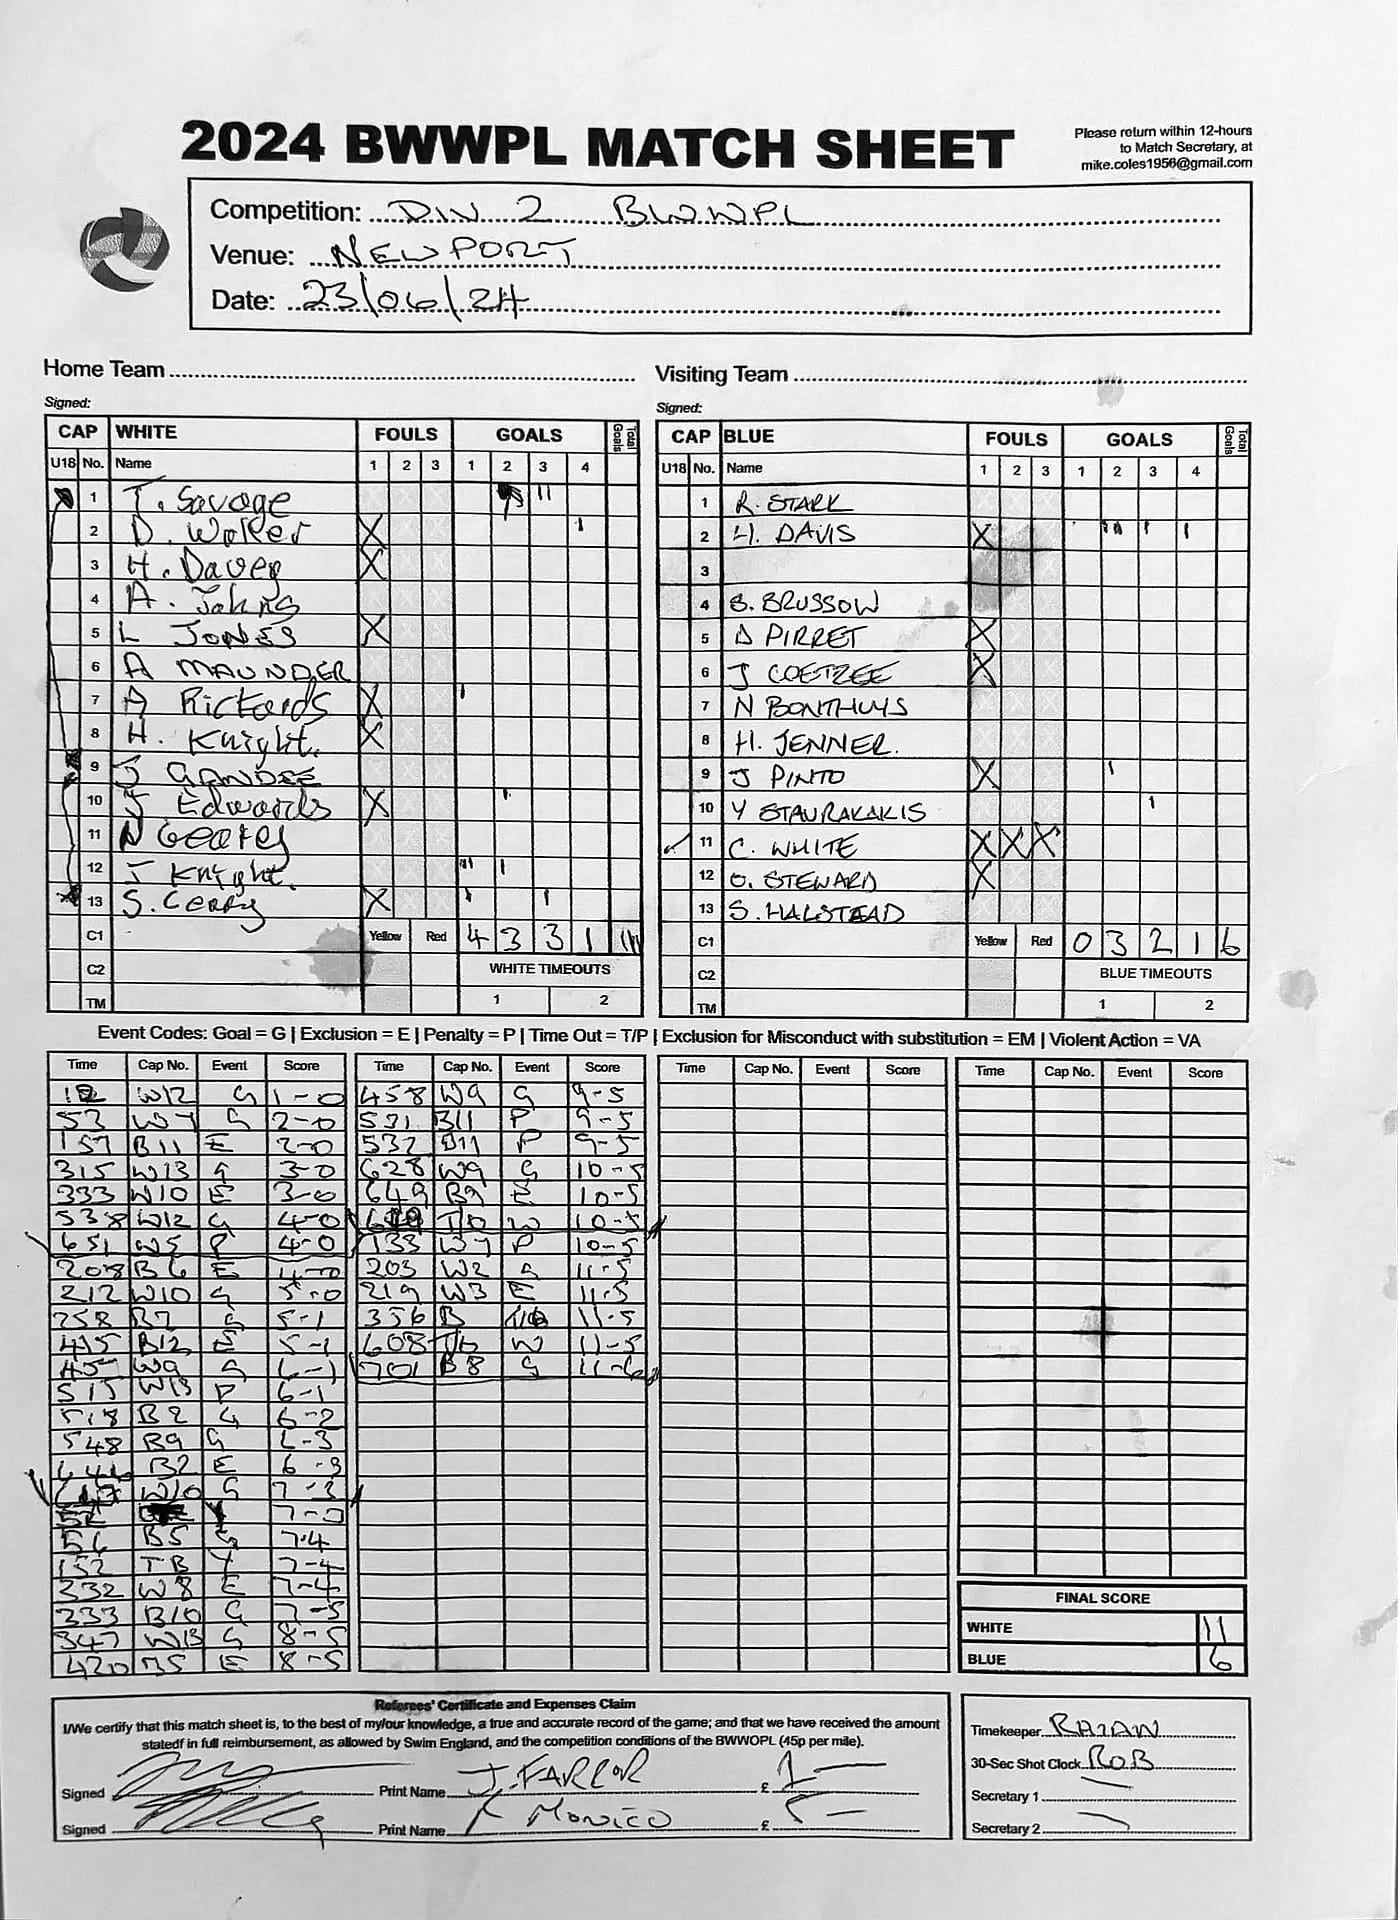 2024 BWWPL MATCH SHEET
Please return within 12-hours
to Match Secretary, at
mike.coles1956@gmail.com
Competition: DIV 2 BWWPL
Venue: NEWPORT
Date: 23/06/24
Home Team
Visiting Team
Signed:
Signed:
CAP WHITE FOULS GOALS Total Goals
U18 No. Name 1 2 3 1 2 3 4
1 T. Savage
2 D. Walker X
3 H. Davey X
4 A. Johns
5 L JONES X
6 A MAUNDER
7 A Rickards X
8 H. Knight. X
9 J GANDEE
10 J Edwards X
11 N Gearey
12 J Knight.
13 S. Cerry X
C1 Yellow Red 4 3 3 1 11
C2 WHITE TIMEOUTS
TM 1 2
CAP BLUE FOULS GOALS Total Goals
U18 No. Name 1 2 3 1 2 3 4
1 R. STARK
2 H. DAVIS X
3
4 B. BRUSSOW
5 D PIRRET X
6 J COETZEE X
7 N BONTHUYS
8 H. JENNER.
9 J PINTO X
10 Y STAURAKAKIS
11 C. WHITE X X X
12 O. STEWARD X
13 S. HALSTEAD
C1 Yellow Red 0 3 2 1 6
C2 BLUE TIMEOUTS
TM 1 2
Event Codes: Goal = G | Exclusion = E | Penalty = P | Time Out = T/P | Exclusion for Misconduct with substitution = EM | Violent Action = VA
Time Cap No. Event Score
W12 G 1-0
53 W7 G 2-0
157 B11 E 2-0
315 W13 G 3-0
333 W10 E 3-0
538 W12 G 4-0
651 W5 P 4-0
208 B6 E 4-0
212 W10 G 5-0
258 B2 G 5-1
415 B12 E 5-1
457 W9 G 6-1
515 W13 P 6-1
518 B2 G 6-2
548 B9 G 6-3
646 B2 E 6-3
W10 G 7-3
7-3
56 B5 G 7-4
152 TB Y 7-4
332 W8 E 7-4
333 B10 G 7-5
347 W13 G 8-5
420 B5 E 8-5
Time Cap No. Event Score
458 W9 G 9-5
531 B11 P 9-5
532 B11 P 9-5
628 W9 G 10-5
649 B9 E 10-5
TO W 10-5
133 W7 P 10-5
203 W2 G 11-5
219 W3 E 11-5
356 B 11-5
608 W 11-5
701 B8 G 11-6
Time Cap No. Event Score
Time Cap No. Event Score
FINAL SCORE
WHITE 11
BLUE 6
Referees' Certificate and Expenses Claim
I/We certify that this match sheet is, to the best of my/our knowledge, a true and accurate record of the game; and that we have received the amount
statedf in full reimbursement, as allowed by Swim England, and the competition conditions of the BWWOPL (45p per mile).
Signed Print Name J. FARROR £
Signed Print Name K MONICO £
Timekeeper
30-Sec Shot Clock ROB
Secretary 1
Secretary 2